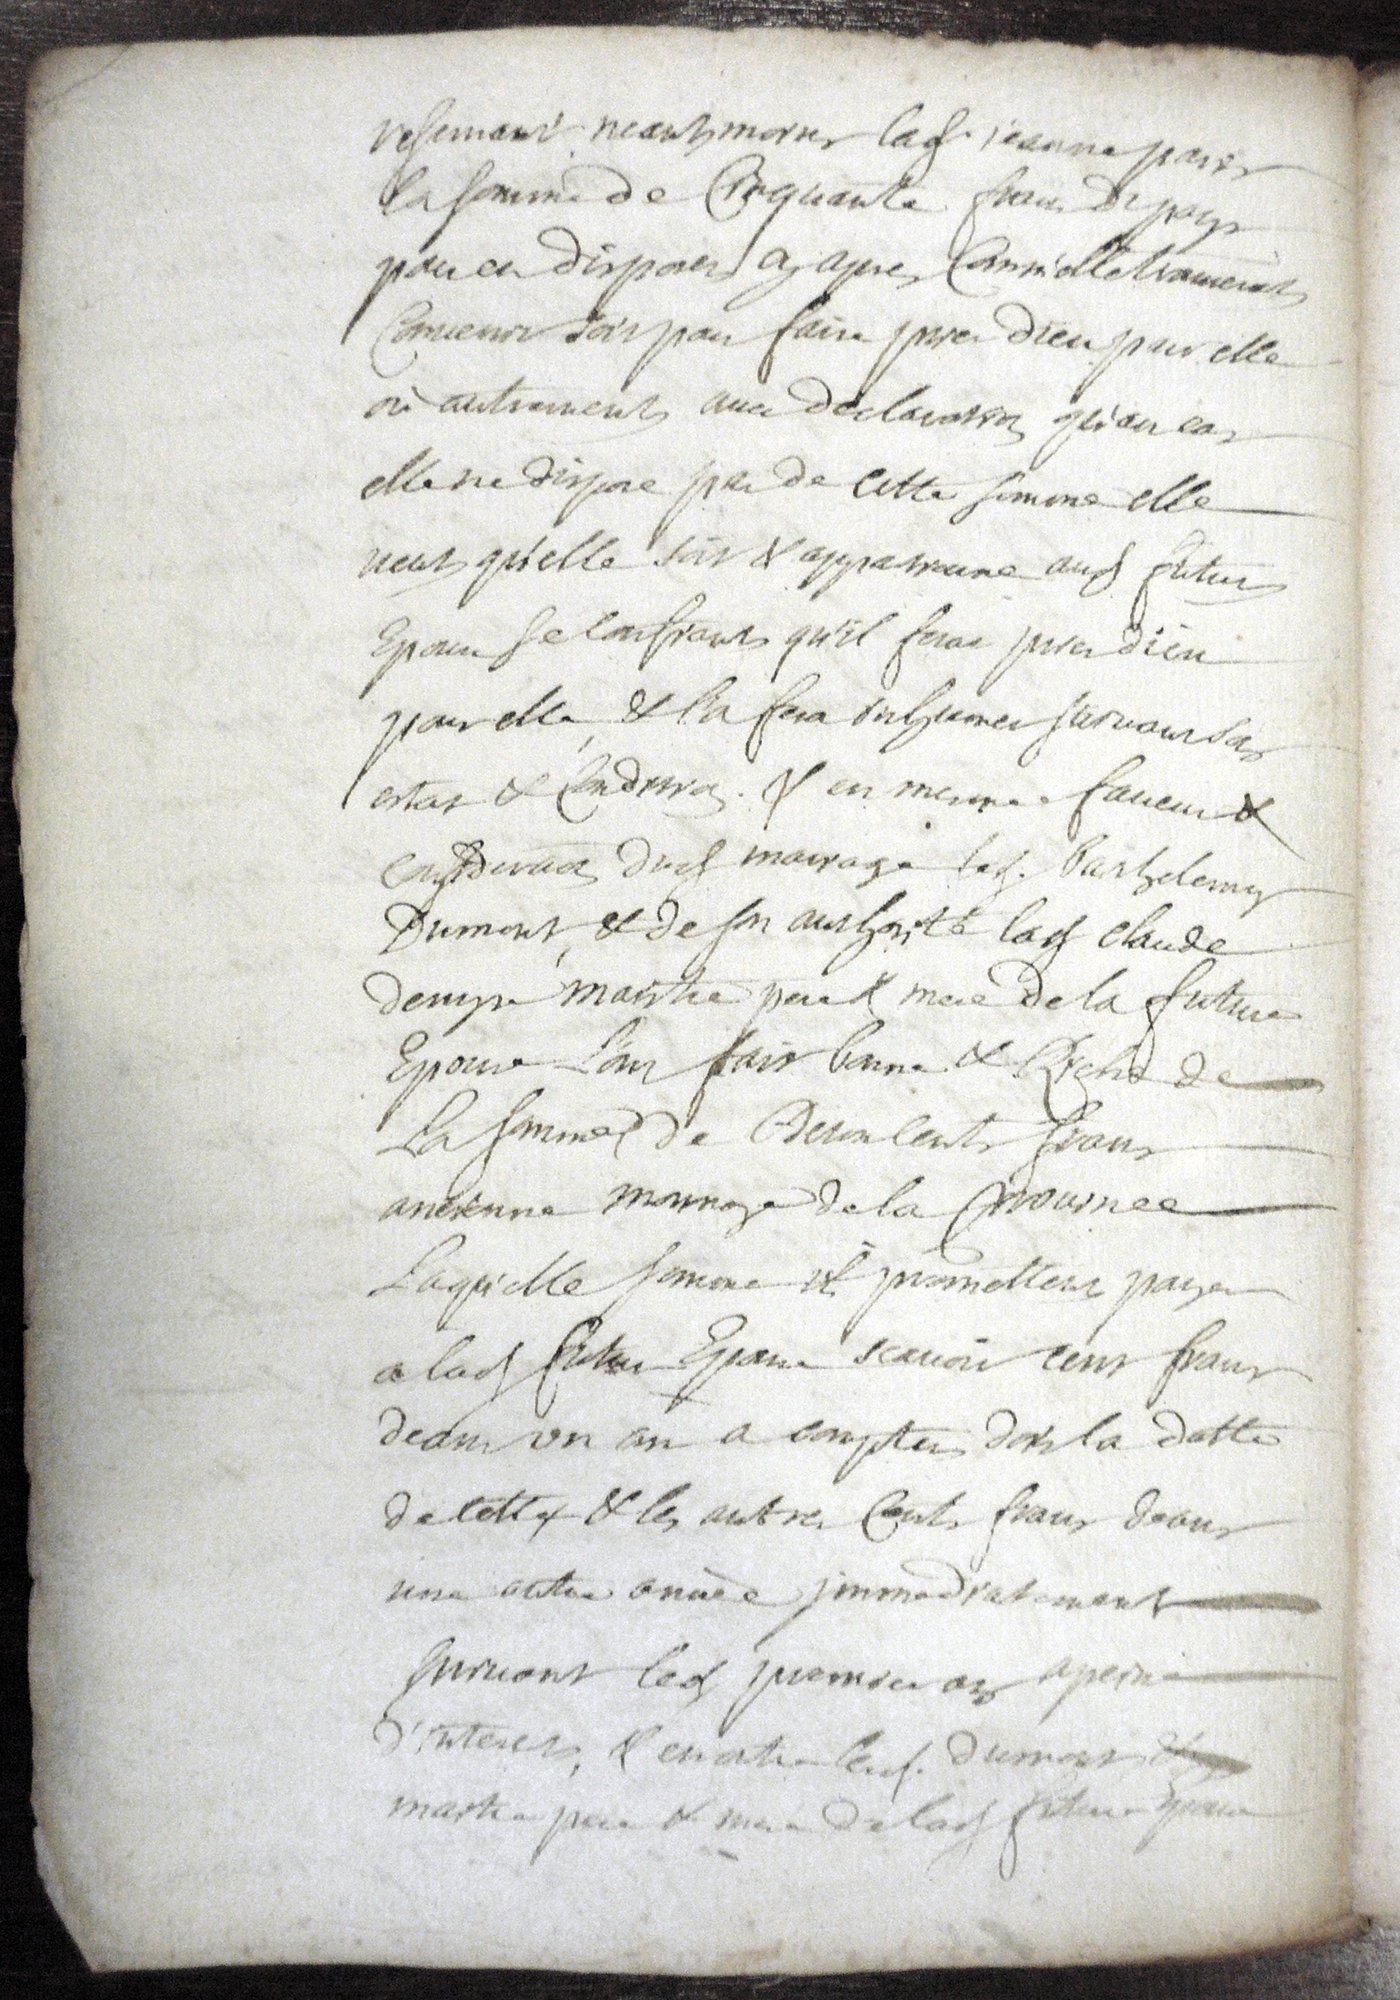 reservant neantmoins lad. jeanne paris
la somme de Cinquante frans du pays
pour en disposer cy apres Comm'elle trouverat
Convenir soit pour faire prier dieu pour elle
où autrement avec declaration qu'en cas
elle ne dispose pas de cette somme elle
veut qu'elle soit & appartienne aud futur
Epoux se confiant qu'il ferat prier dieu
pour elle & la fera inhumer suivant son
estat & Condition. & en mesme faveur &
consideration dud mariage led. Barthelemy
Dumont, & de son authorité lad claude
maistre pere & mere de la future
Epouse L'ont fait bonne & Riche de
La somme de Deux Cents frans
ancienne monnoye de la Province
Laquelle somme ils promettent payer
a lad future Epouse scavoir cent frans
deans un an a compter dois la datte
de cette & les autres Cents frans deans
une autre année jmmediatement
suivant led premier an a peine
d'interets, & en outre lesd. Dumont &
maistre pere & mere de lad future Epouse